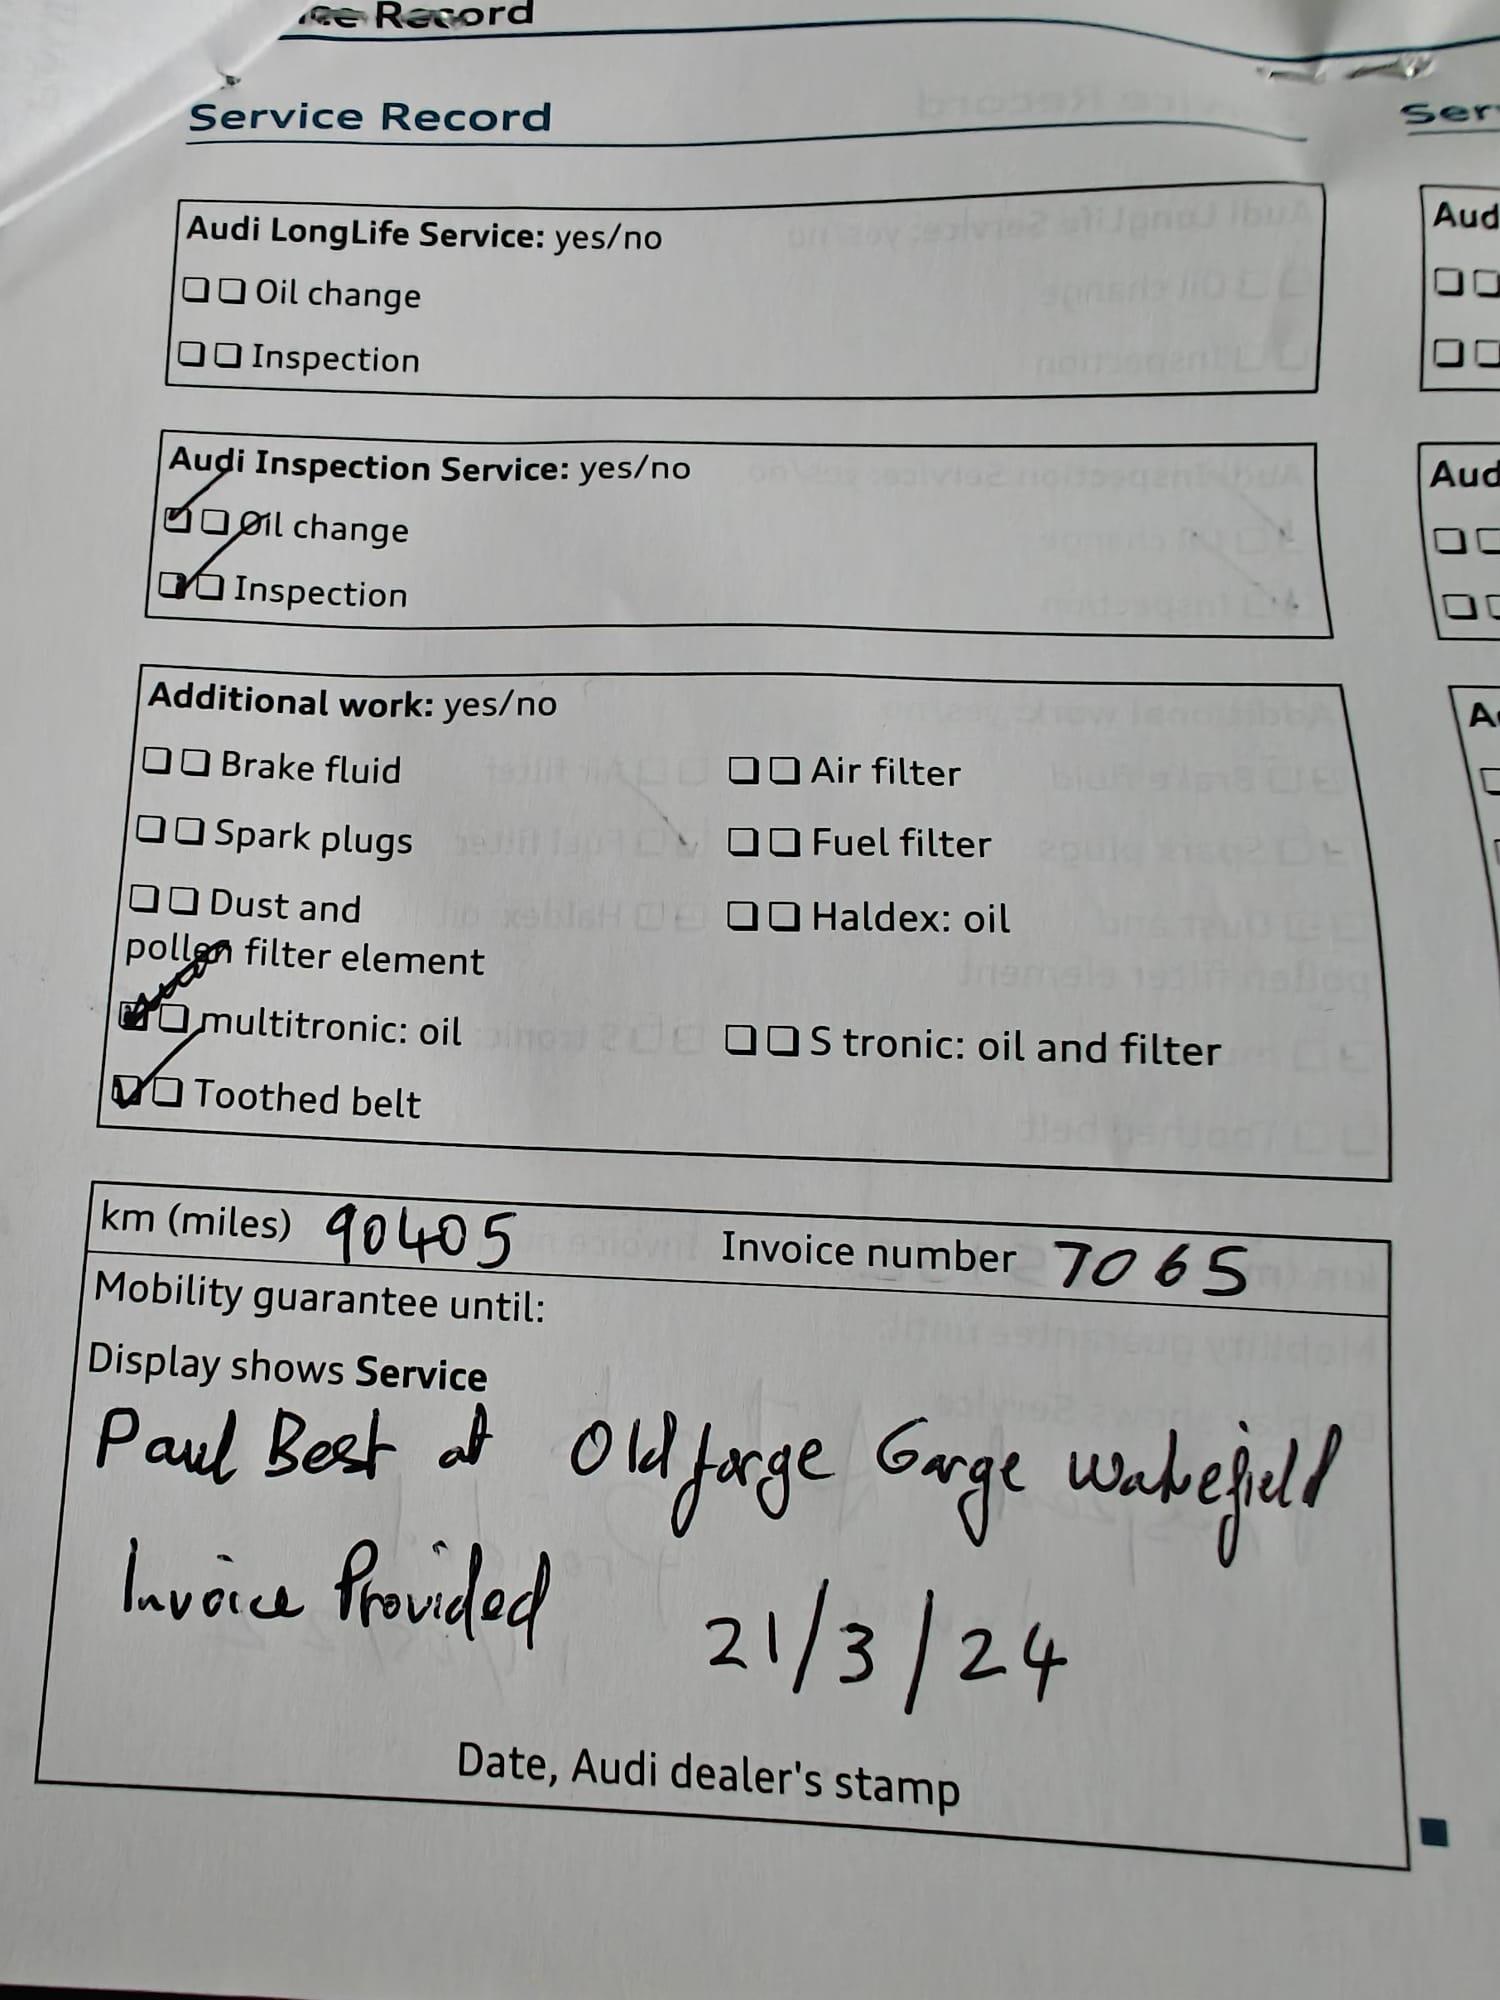 Record
Service Record
Ser
Audi LongLife Service: yes/no
Oil change
Inspection
Aud
Audi Inspection Service: yes/no
Oil change
Inspection
Aud
Additional work: yes/no
Brake fluid
Air filter
Spark plugs
Fuel filter
Dust and
pollen filter element
Haldex: oil
multitronic: oil
S tronic: oil and filter
Toothed belt
A
km (miles) 90405 Invoice number 7065
Mobility guarantee until:
Display shows Service
Paul Best at Oldforge Garge Wakefield
Invoice Provided 21/3/24
Date, Audi dealer's stamp